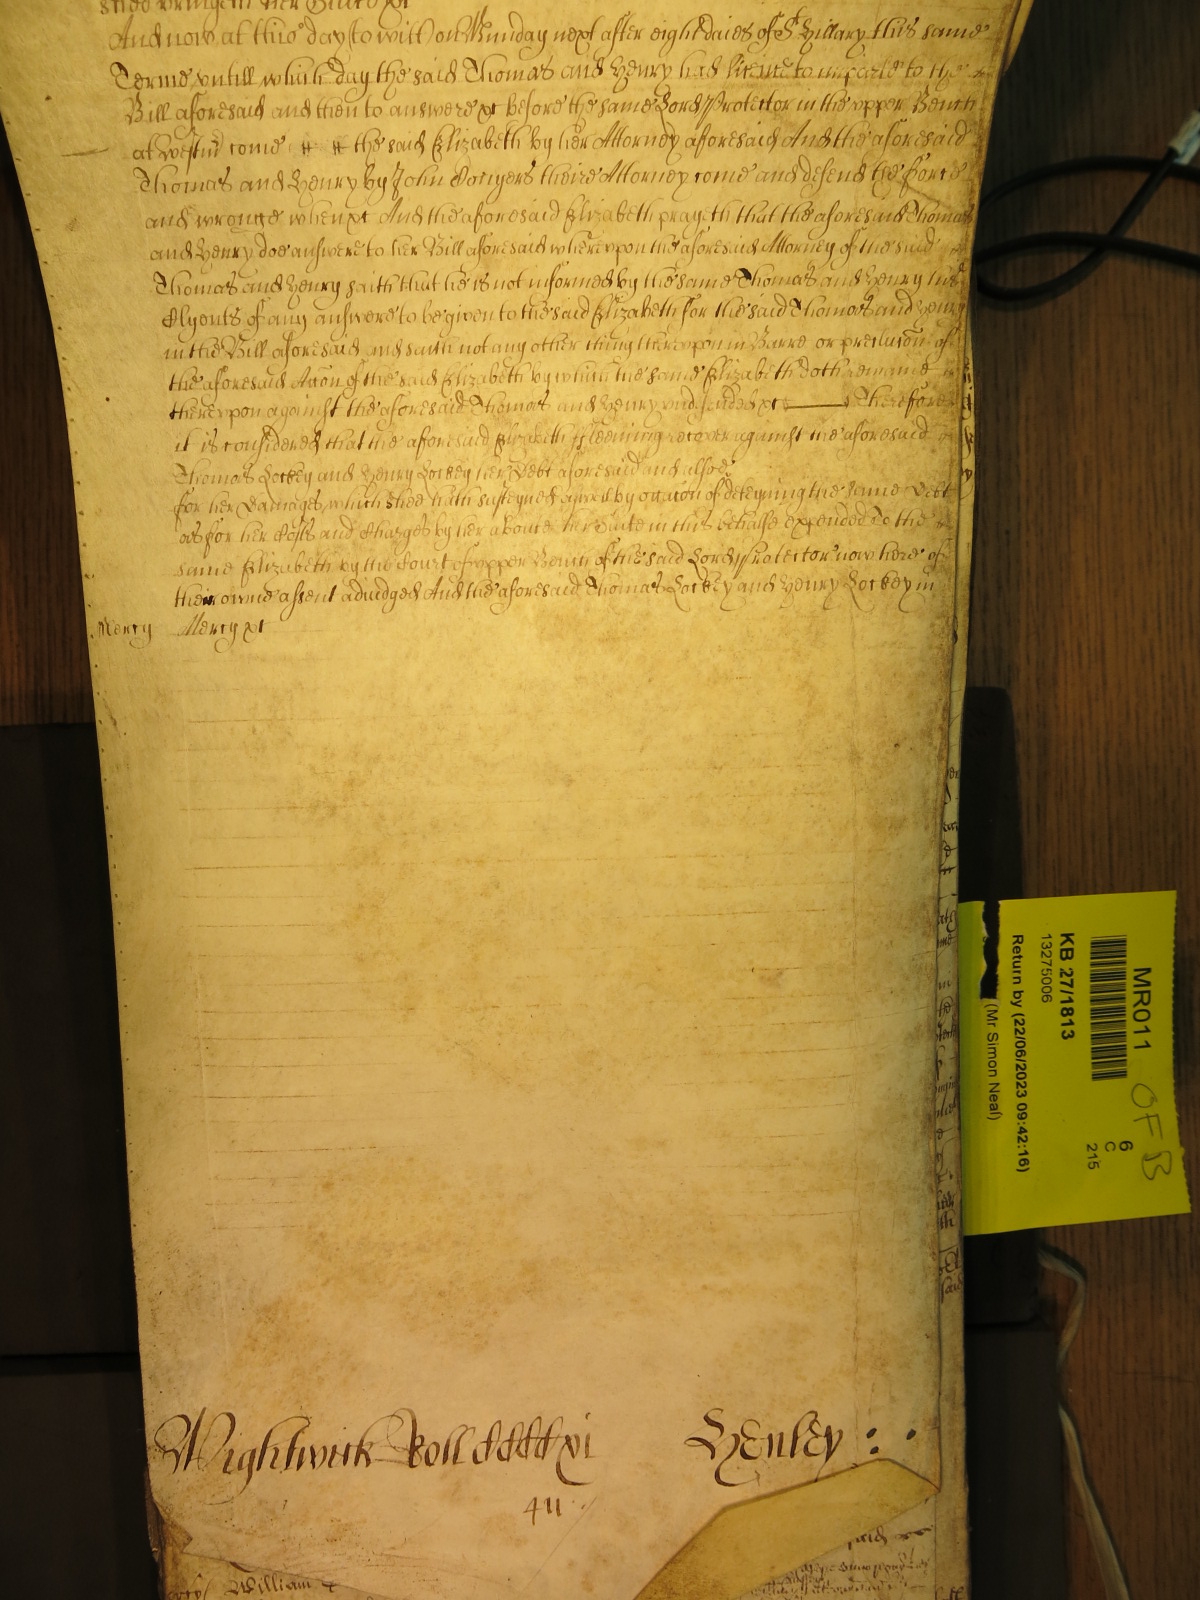 shee bringeth her Suite &c
And now at this day (to witt) on Munday next after eight daies of St Hillary this same
Terme untill which day the said Thomas and Henry had licence to imparle to the
Bill aforesaid and then to answere &c before the same Lord Protector in the upper Bench
at Westmr come the said Elizabeth by her Attorney aforesaid And the aforesaid
Thomas and Henry by John theire Attorney come and defend the force
and wronge when &c And the aforesaid Elizabeth prayeth that the aforesaid Thomas
and Henry doe answere to her Bill aforesaid whereupon the aforesaid Attorney of the said
Thomas and Henry saith that he is not informed by the same Thomas and Henry his
Clyents of any answere to be given to the said Elizabeth for the said Thomas and Henry
in the Bill aforesaid and saith not any other thing thereupon in Barre or preclucon of
the aforesaid Accon of the said Elizabeth by which the same Elizabeth doth remaine
thereupon against the aforesaid Thomas and Henry undefended &c Therefore
it is considered that the aforesaid Elizabeth Fleeming recover against the aforesaid
Thomas Lockey and Henry Lockey her Debt aforesaid and alsoe
for her Damages which shee hath susteyned aswell by occacon of deteyning the same Debt
as for her Costs and Charges by her aboute her Suite in this behalfe expended to the
same Elizabeth by the Court of upper Bench of the said Lord Protector now here of
their owne assent adiudged And the aforesaid Thomas Lockey and Henry Lockey in
Mercy Mercy &c
Wightwick Roll CCCCxi Henley
411
William
MR011
OF B
KB 27/1813
13275006
6
C
215
Return by (22/06/2023 09:42:16)
(Mr Simon Neal)